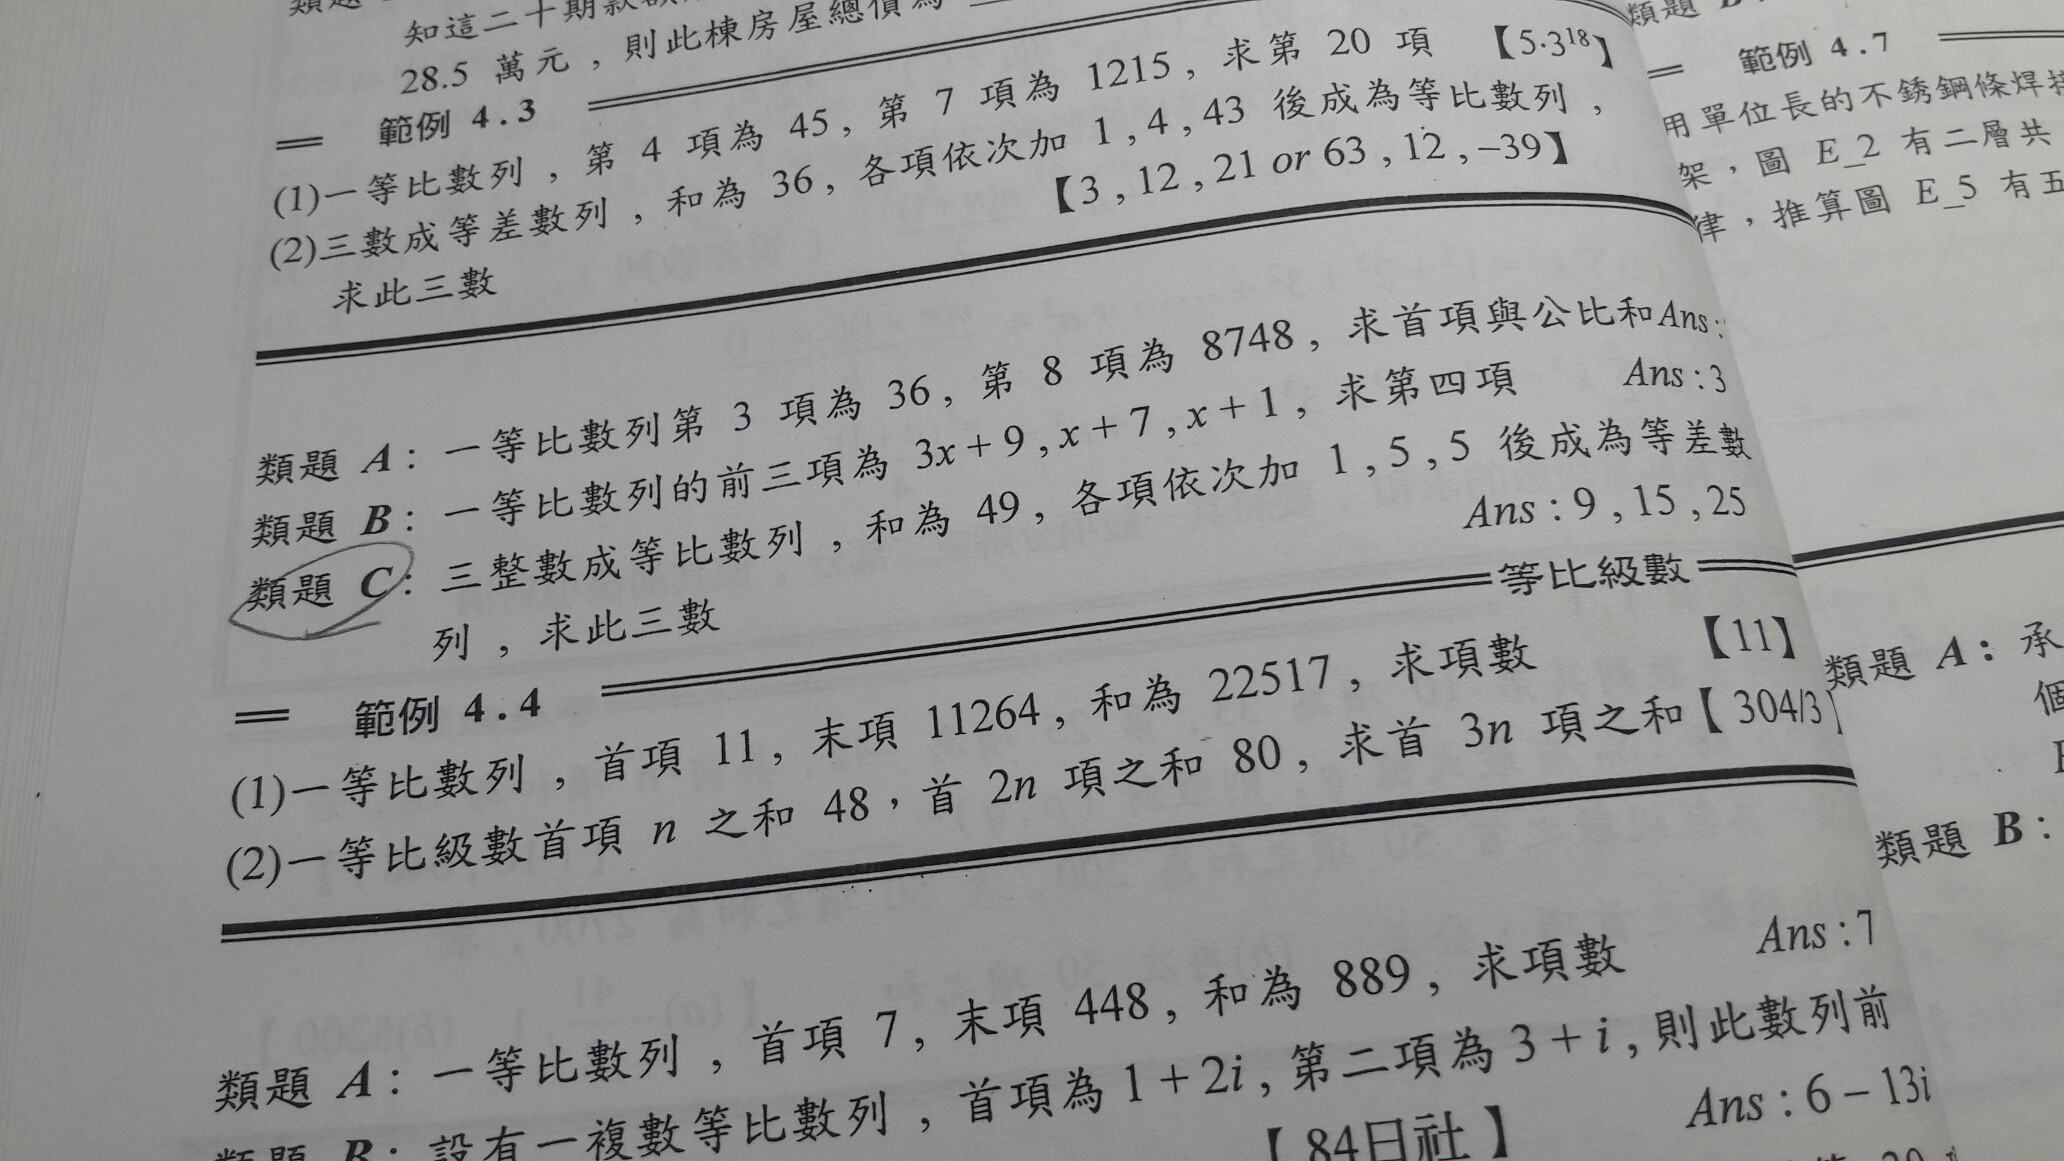 知這二十期款額
28.5 萬元，則此棟房屋總價為
範例 4.3
(1)一等比數列，第 4 項為 45，第 7 項為 1215，求第 20 項 【5·3¹⁸】
(2)三數成等差數列，和為 36，各項依次加 1，4，43 後成為等比數列，
求此三數 【3，12，21 or 63，12，−39】
類題 A：一等比數列第 3 項為 36，第 8 項為 8748，求首項與公比和 Ans：
類題 B：一等比數列的前三項為 3x+9，x+7，x+1，求第四項 Ans：3
類題 C：三整數成等比數列，和為 49，各項依次加 1，5，5 後成為等差數
列，求此三數 Ans：9，15，25
等比級數
範例 4.4
(1)一等比數列，首項 11，末項 11264，和為 22517，求項數 【11】
(2)一等比級數首項 n 之和 48，首 2n 項之和 80，求首 3n 項之和【304/3】
類題 A：一等比數列，首項 7，末項 448，和為 889，求項數 Ans：7
類題 B：設有一複數等比數列，首項為 1+2i，第二項為 3+i，則此數列前
【84日社】 Ans：6−13i
類題
範例 4.7
用單位長的不銹鋼條焊接
架，圖 E_2 有二層共
律，推算圖 E_5 有五
類題 A：承
個
類題 B：